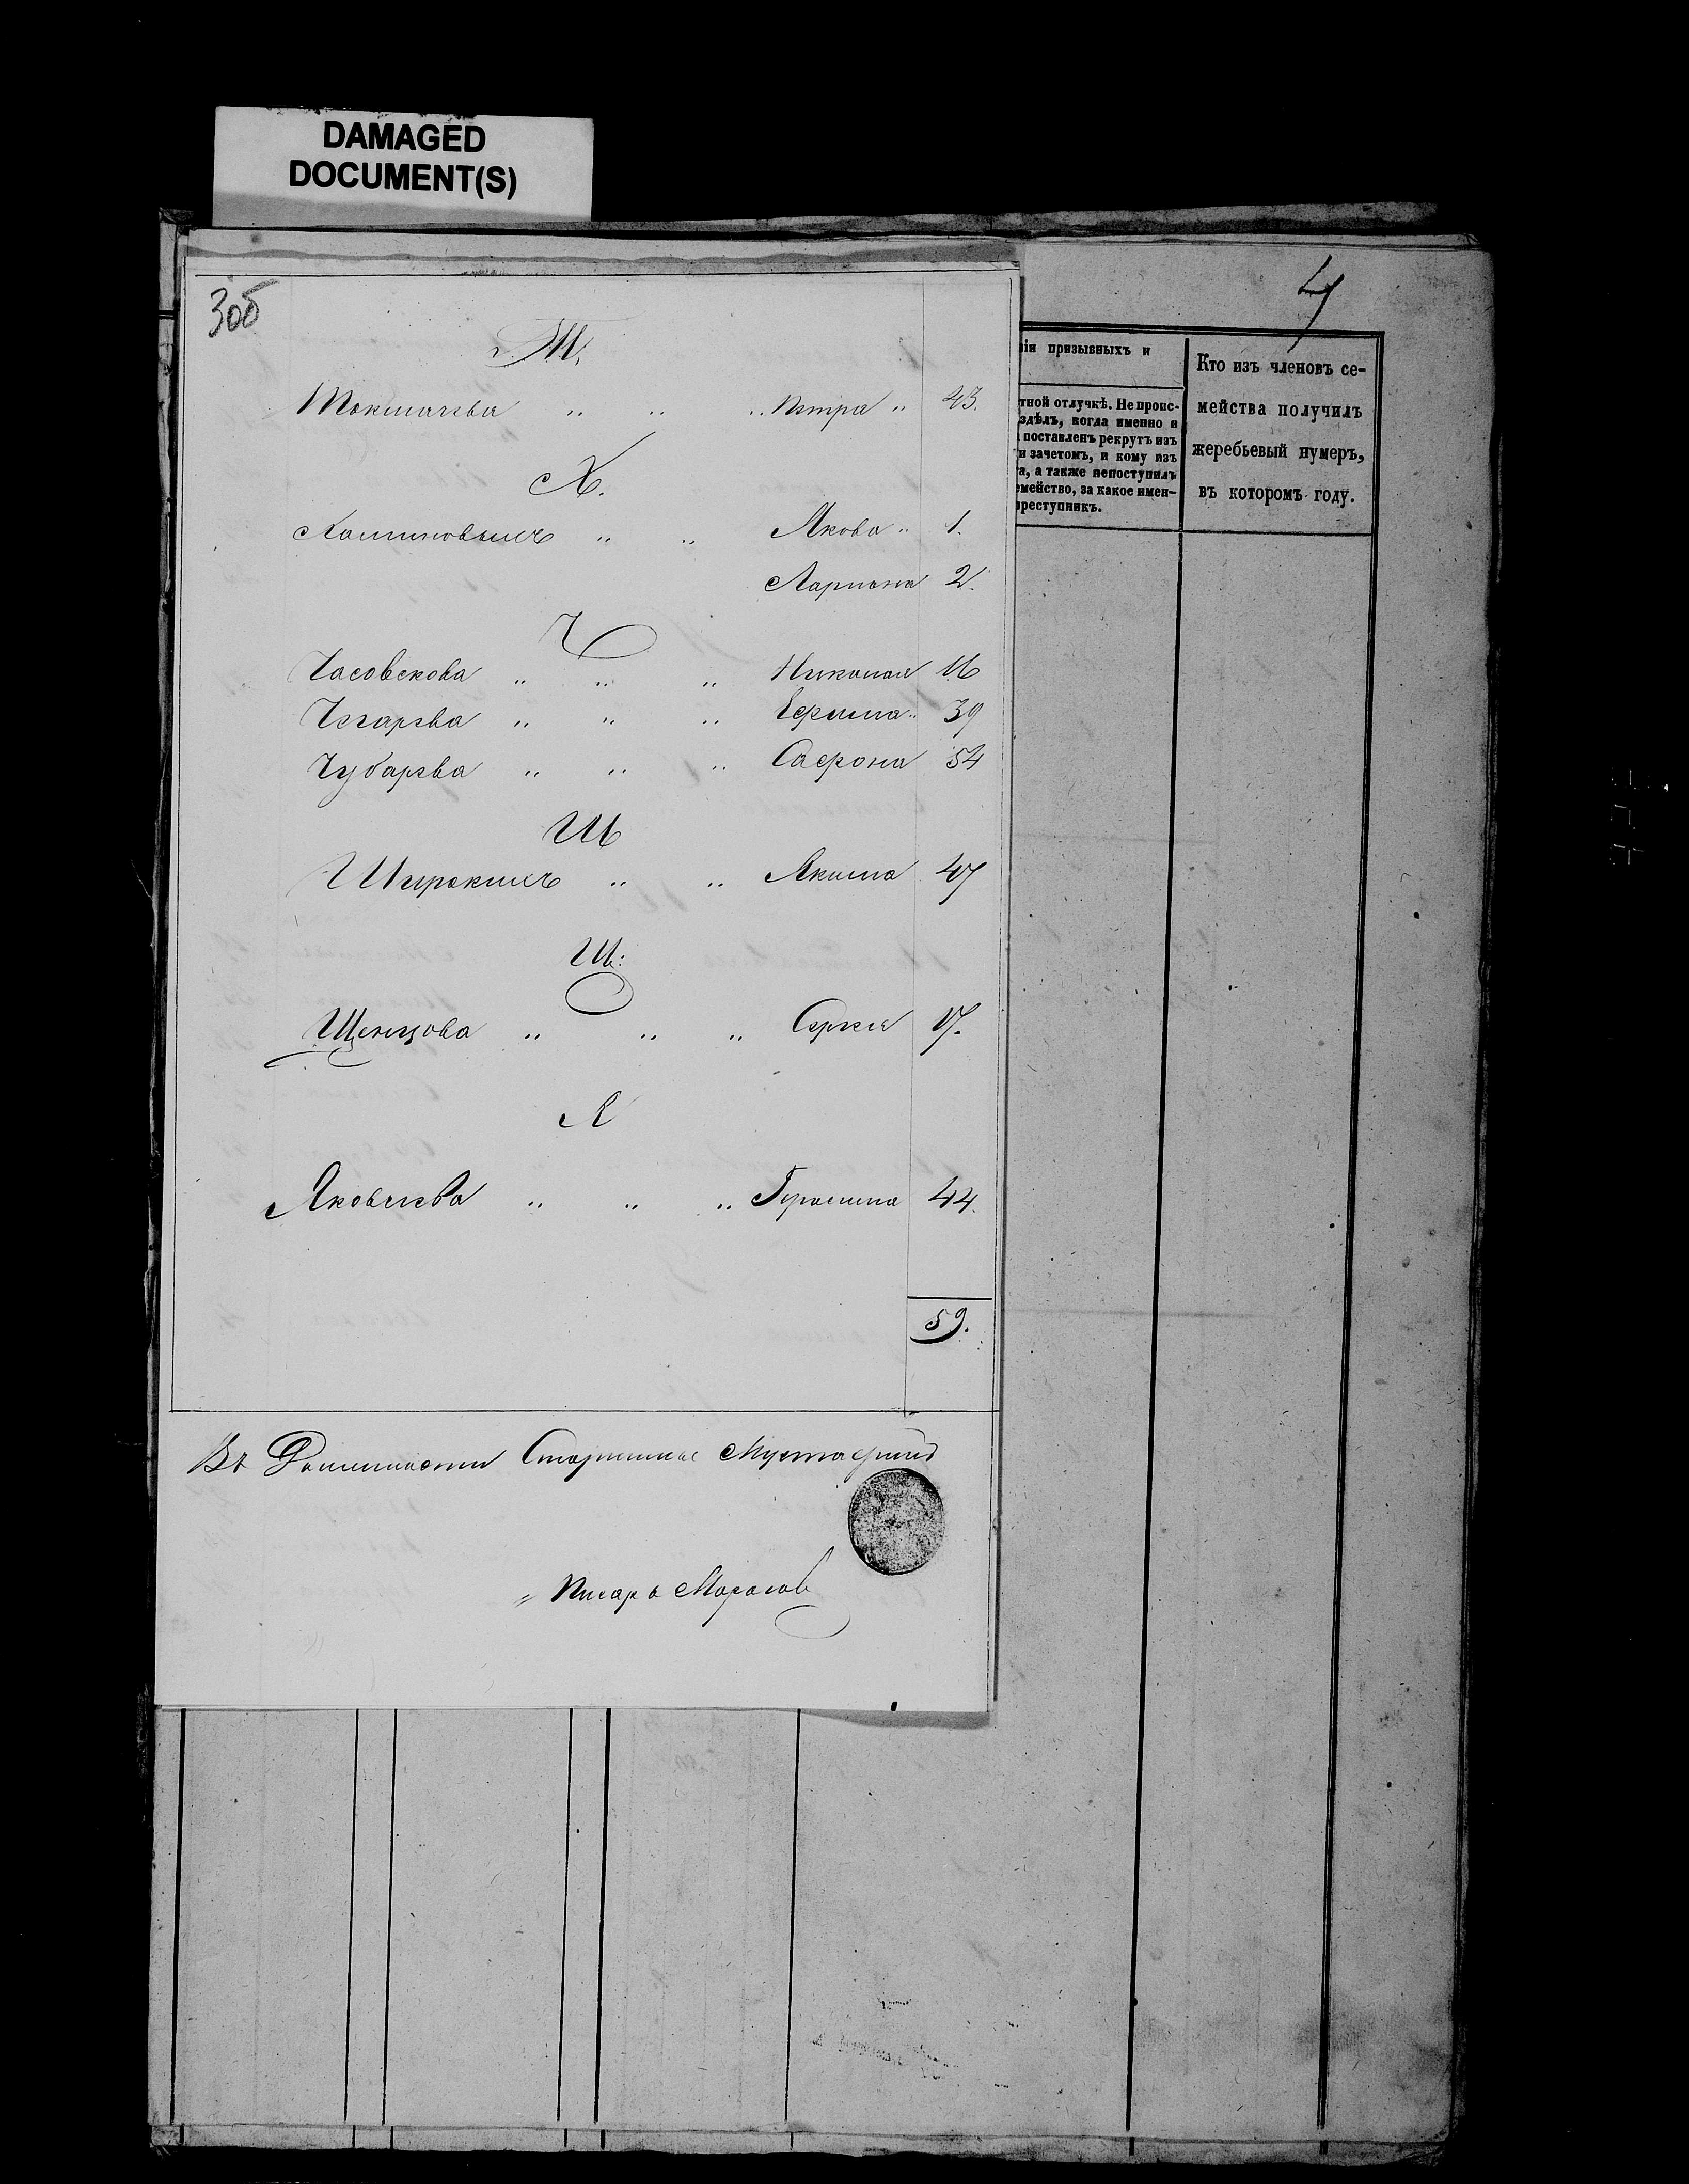 DAMAGED
DOCUMENT(S)
3об
4
Т.
Токмачева " " " Петра " 43.
Х.
Холиновыхъ " " Якова " 1.
Лариона 2.
Ч
Часовскова " " " Николая 16
Чегарева " " " Ефима " 39
Чубарева " " " Сафона 54
Ш
Широкихъ " " Якима 47
Щ:
Щенцова " " " Сергея 17.
Я
Яковлева " " " Герасима 44.
59.
Въ Должности Старшины Мустафинъ
Писарь
ніи призывныхъ и
тной отлучкѣ. Не проис-
здѣлъ, когда именно и
поставленъ рекрутъ изъ
и зачетомъ, и кому изъ
а, а также непоступилъ
емейство, за какое имен-
преступникъ.
Кто изъ членовъ се-
мейства получилъ
жеребьевый нумеръ,
въ которомъ году.